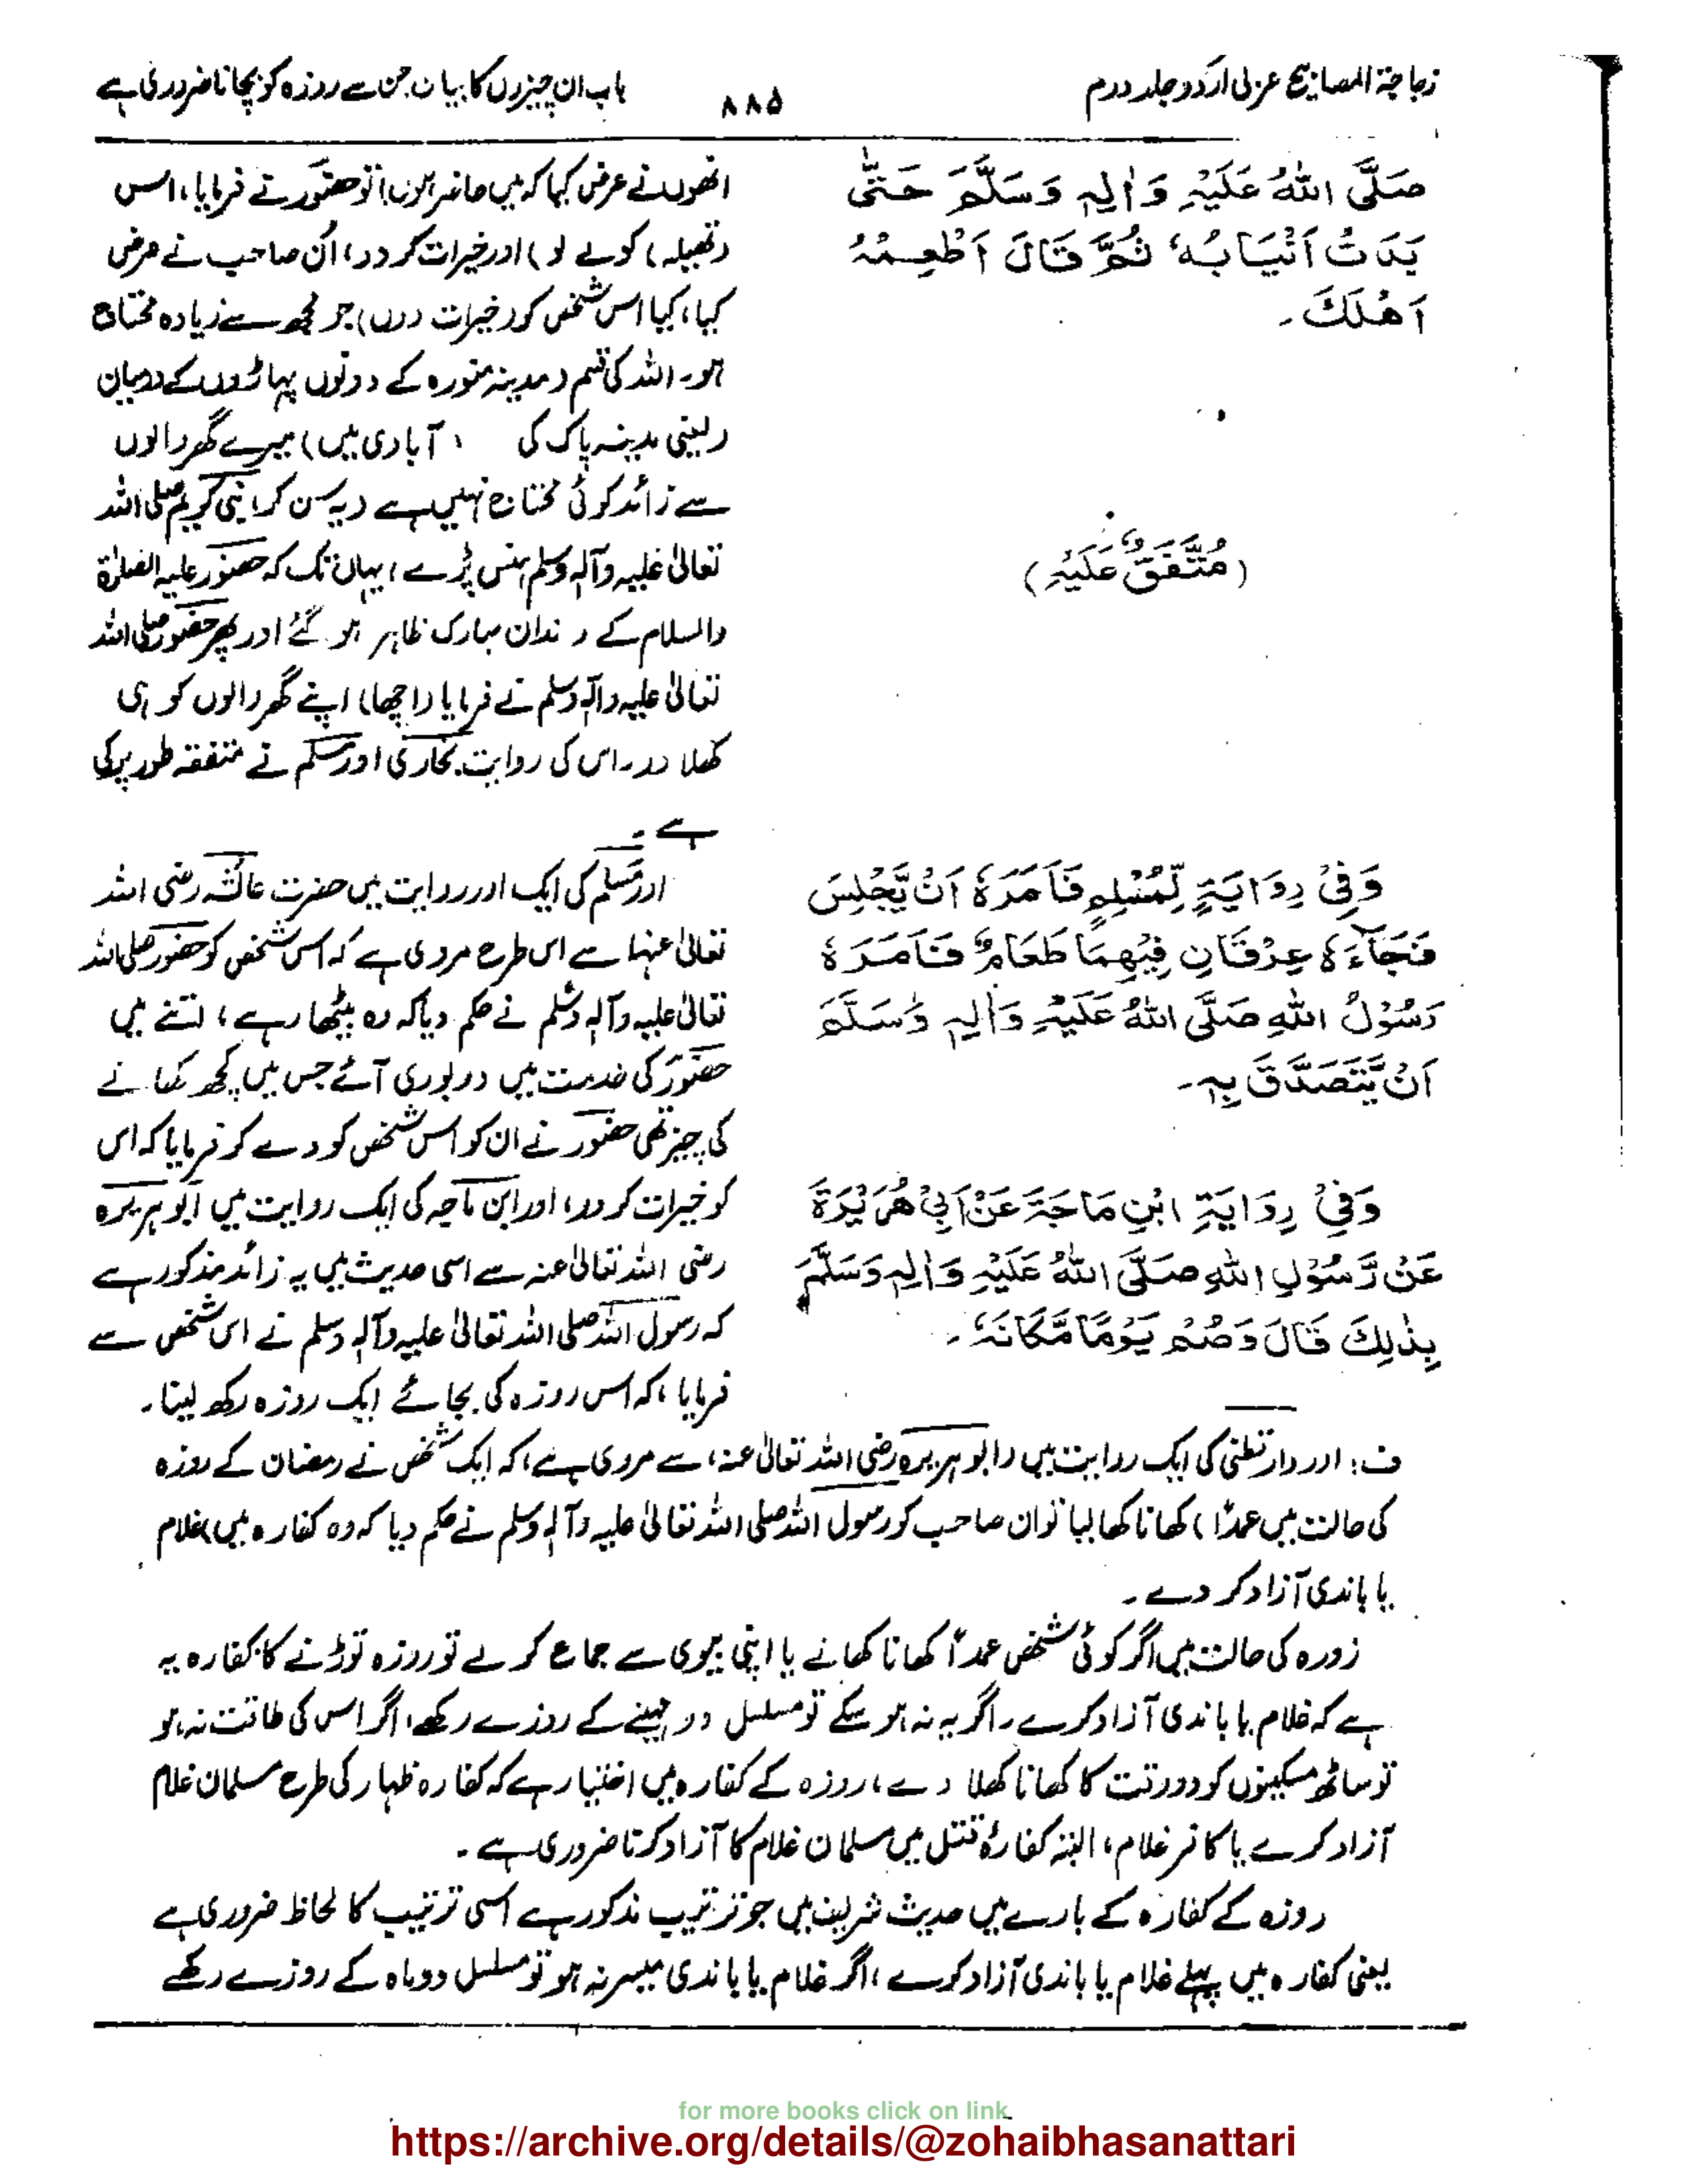 زجاجۃ المصابیح عربی اردو جلد دوم
۸۸۵
باب ان چیزوں کا بیان جن سے روزہ کو بچانا ضروری ہے
صَلَّى اللهُ عَلَيْهِ وَاٰلِهٖ وَسَلَّمَ حَتّٰى
بَدَتْ اَنْيَابُهٗ ثُمَّ قَالَ اَطْعِمْهُ
اَهْلَكَ۔
(مُتَّفَقٌ عَلَيْهِ)
وَفِيْ رِوَايَةٍ لِّمُسْلِمٍ فَاَمَرَهٗ اَنْ يَّجْلِسَ
فَجَآءَهٗ عِرْقَانِ فِيْهِمَا طَعَامٌ فَاَمَرَهٗ
رَسُوْلُ اللهِ صَلَّى اللهُ عَلَيْهِ وَاٰلِهٖ وَسَلَّمَ
اَنْ يَّتَصَدَّقَ بِهٖ۔
وَفِيْ رِوَايَةِ ابْنِ مَاجَةَ عَنْ اَبِيْ هُرَيْرَةَ
عَنْ رَّسُوْلِ اللهِ صَلَّى اللهُ عَلَيْهِ وَاٰلِهٖ وَسَلَّمَ
بِذٰلِكَ قَالَ وَصُمْ يَوْمًا مَّكَانَهٗ۔
انھوں نے عرض کیا کہ میں حاضر ہوں! تو حضور نے فرمایا، اس
(تھیلہ) کو لے لو) اور خیرات کر دو، اُن صاحب نے عرض
کیا، کیا اس شخص کو (خیرات دوں) جو مجھ سے زیادہ محتاج
ہو۔ اللہ کی قسم (مدینہ منورہ کے دونوں پہاڑوں کے درمیان
(یعنی مدینہ پاک کی آبادی میں) میرے گھر والوں
سے زائد کوئی محتاج نہیں ہے (یہ سن کر) نبی کریم صلی اللہ
تعالیٰ علیہ وآلہٖ وسلم ہنس پڑے، یہاں تک کہ حضور علیہ الصلوٰۃ
والسلام کے دندان مبارک ظاہر ہو گئے اور پھر حضور صلی اللہ
تعالیٰ علیہ وآلہٖ وسلم نے فرمایا (اچھا) اپنے گھر والوں کو ہی
کھلا دو۔ اس کی روایت بخاری اور مسلم نے متفقہ طور پر کی
ہے۔
اور مسلم کی ایک اور روایت میں حضرت عائشہ رضی اللہ
تعالیٰ عنہا سے اس طرح مروی ہے کہ اس شخص کو حضور صلی اللہ
تعالیٰ علیہ وآلہٖ وسلم نے حکم دیا کہ وہ بیٹھا رہے، اتنے میں
حضور کی خدمت میں دو بوری آئے جس میں کچھ کھانے
کی چیز تھی حضور نے ان کو اس شخص کو دے کر فرمایا کہ اس
کو خیرات کر دو، اور ابن ماجہ کی ایک روایت میں ابو ہریرہ
رضی اللہ تعالیٰ عنہ سے اسی حدیث میں یہ زائد مذکور ہے
کہ رسول اللہ صلی اللہ تعالیٰ علیہ وآلہٖ وسلم نے اس شخص سے
فرمایا، کہ اس روزہ کی بجائے ایک روزہ رکھ لینا۔
ف: اور دار قطنی کی ایک روایت میں (ابو ہریرہ رضی اللہ تعالیٰ عنہ، سے مروی ہے، کہ ایک شخص نے رمضان کے روزہ
کی حالت میں عمداً) کھانا کھا لیا تو ان صاحب کو رسول اللہ صلی اللہ تعالیٰ علیہ وآلہٖ وسلم نے حکم دیا کہ وہ کفارہ میں) غلام
یا باندی آزاد کر دے۔
زورہ کی حالت میں اگر کوئی شخص عمداً کھانا کھانے یا اپنی بیوی سے جماع کر لے تو روزہ توڑنے کا کفارہ یہ
ہے کہ غلام یا باندی آزاد کرے۔ اگر یہ نہ ہو سکے تو مسلسل دو مہینے کے روزے رکھے، اگر اس کی طاقت نہ ہو
تو ساٹھ مسکینوں کو دو وقت کا کھانا کھلا دے، روزہ کے کفارہ میں اختیار ہے کہ کفارہ ظہار کی طرح مسلمان غلام
آزاد کرے یا کافر غلام، البتہ کفارۂ قتل میں مسلمان غلام کا آزاد کرنا ضروری ہے۔
روزہ کے کفارہ کے بارے میں حدیث شریف میں جو ترتیب مذکور ہے اسی ترتیب کا لحاظ ضروری ہے
یعنی کفارہ میں پہلے غلام یا باندی آزاد کرے، اگر غلام یا باندی میسر نہ ہو تو مسلسل دو ماہ کے روزے رکھے
for more books click on link
https://archive.org/details/@zohaibhasanattari